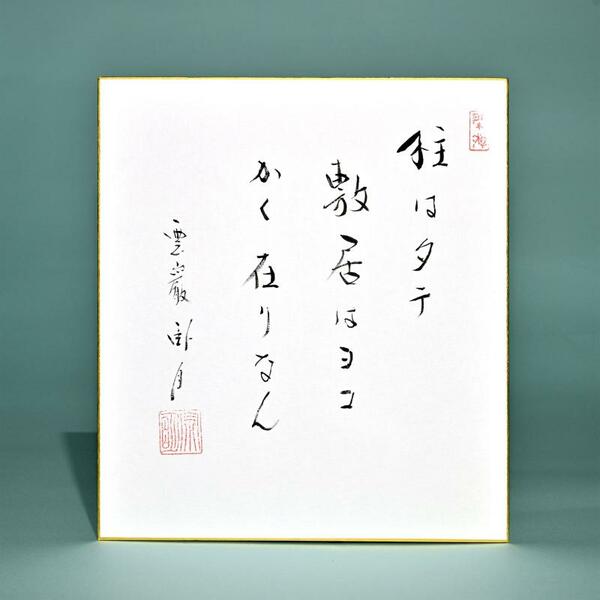 柱はタテ
敷居はヨコ
かく在りなん
雲巖 卧月